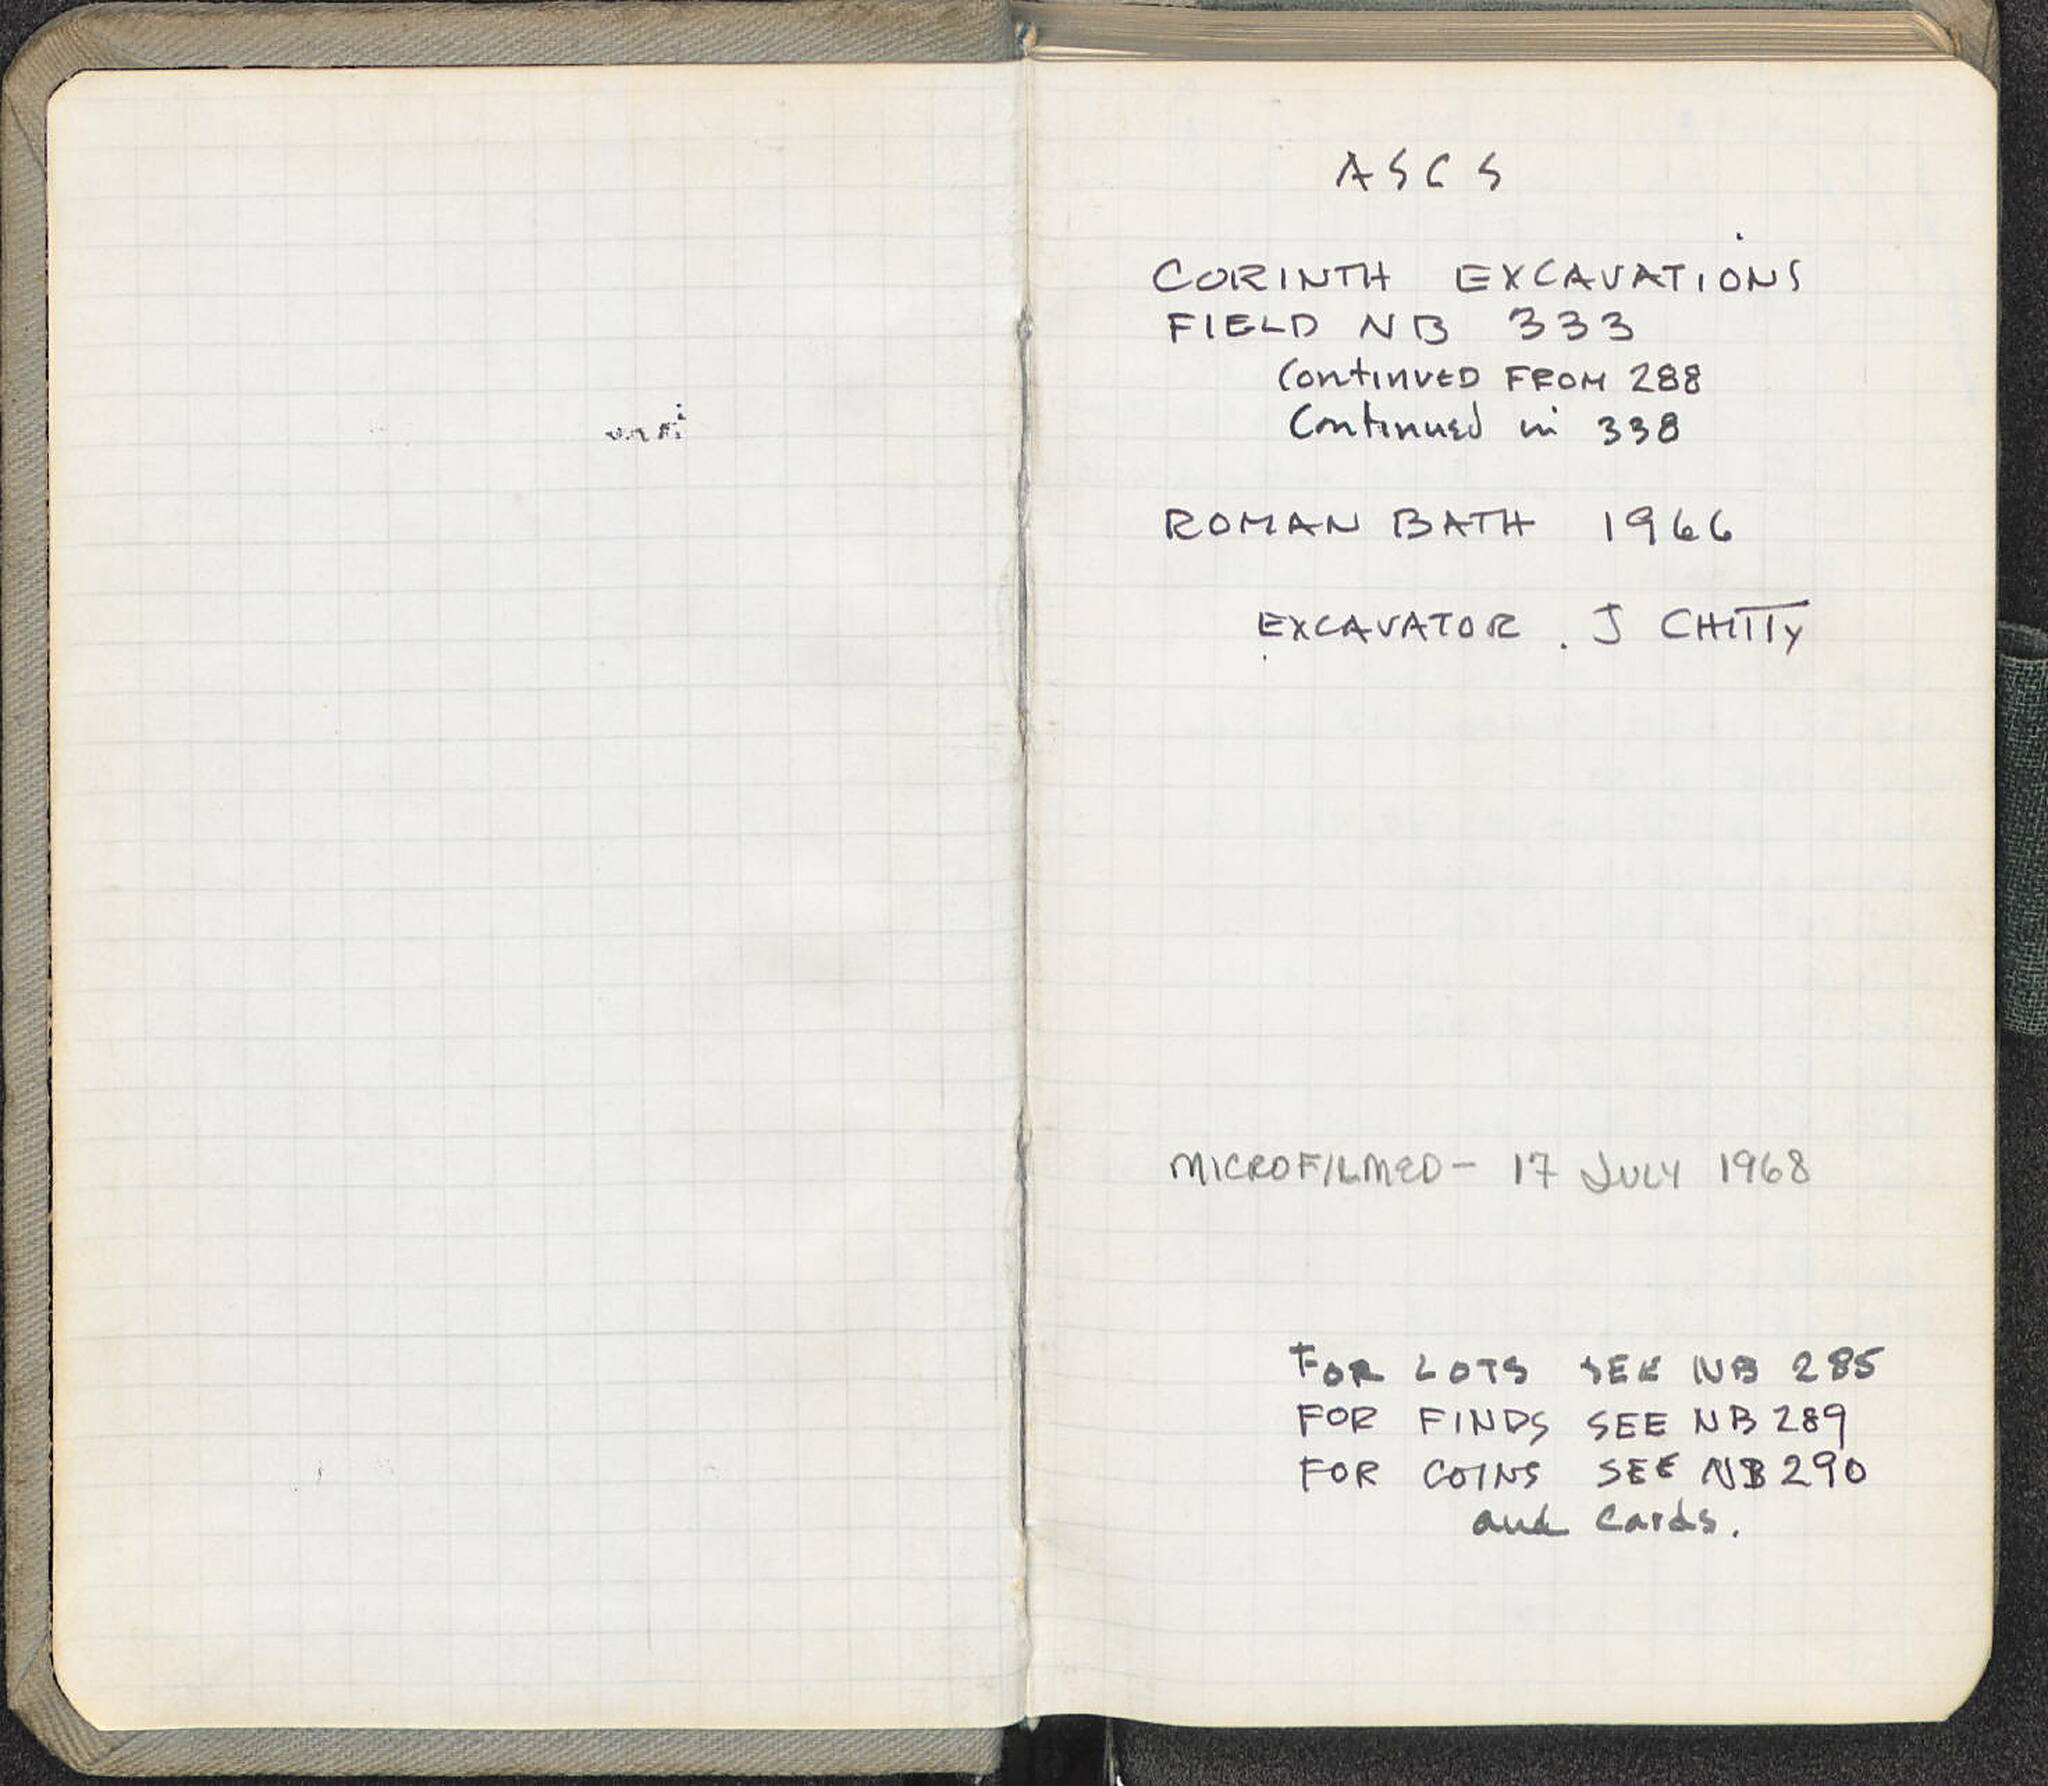 ASCS
CORINTH EXCAVATIONS
FIELD NB 333
Continued FROM 288
Continued in 338
ROMAN BATH 1966
EXCAVATOR . J CHITTY
MICROFILMED - 17 JULY 1968
FOR LOTS SEE NB 285
FOR FINDS SEE NB 289
FOR COINS SEE NB 290
and Cards.